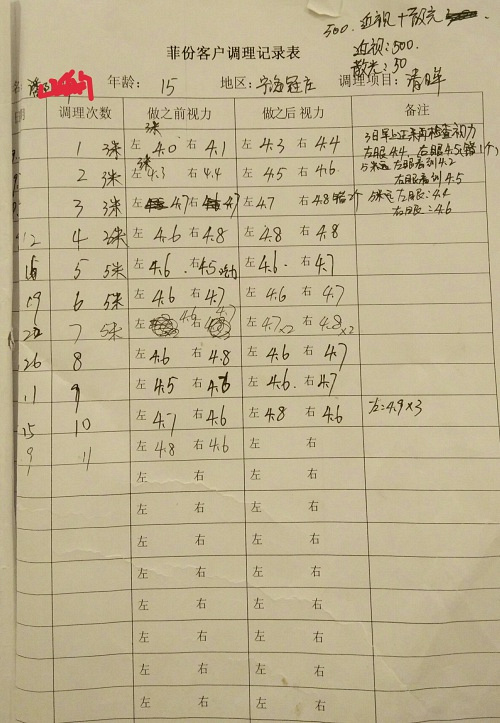 500. 近视+散光
近视:500.
散光:50
菲份客户调理记录表
年龄: 15 地区: 宁海冠庄 调理项目: 清目羊
期 调理次数 做之前视力 做之后视力 备注
1 3米 左 4.0 右 4.1 左 4.3 右 4.4 3日早上正来再检查视力
左眼4.4 右眼4.5(错1个)
2 3米 左 4.3 右 4.4 左 4.5 右 4.6 5米远 左眼看到4.2
右眼看到4.5
3 3米 左 4.7 右 4.7 左 4.7 右 4.8错2个 5米远 左眼:4.4
右眼:4.6
12 4 3米 左 4.6 右 4.8 左 4.8 右 4.8
16 5 5米 左 4.6 右 4.5 左 4.6 右 4.7
19 6 5米 左 4.6 右 4.7 左 4.6 右 4.7
22 7 5米 左 4.6 右 4.7 左 4.7×2 右 4.8×2
26 8 左 4.6 右 4.8 左 4.6 右 4.7
11 9 左 4.5 右 4.6 左 4.6 右 4.7
15 10 左 4.7 右 4.6 左 4.8 右 4.6 左:4.9×3
9 11 左 4.8 右 4.6 左 右
左 右 左 右
左 右 左 右
左 右 左 右
左 右 左 右
左 右 左 右
左 右 左 右
左 右 左 右
左 右 左 右